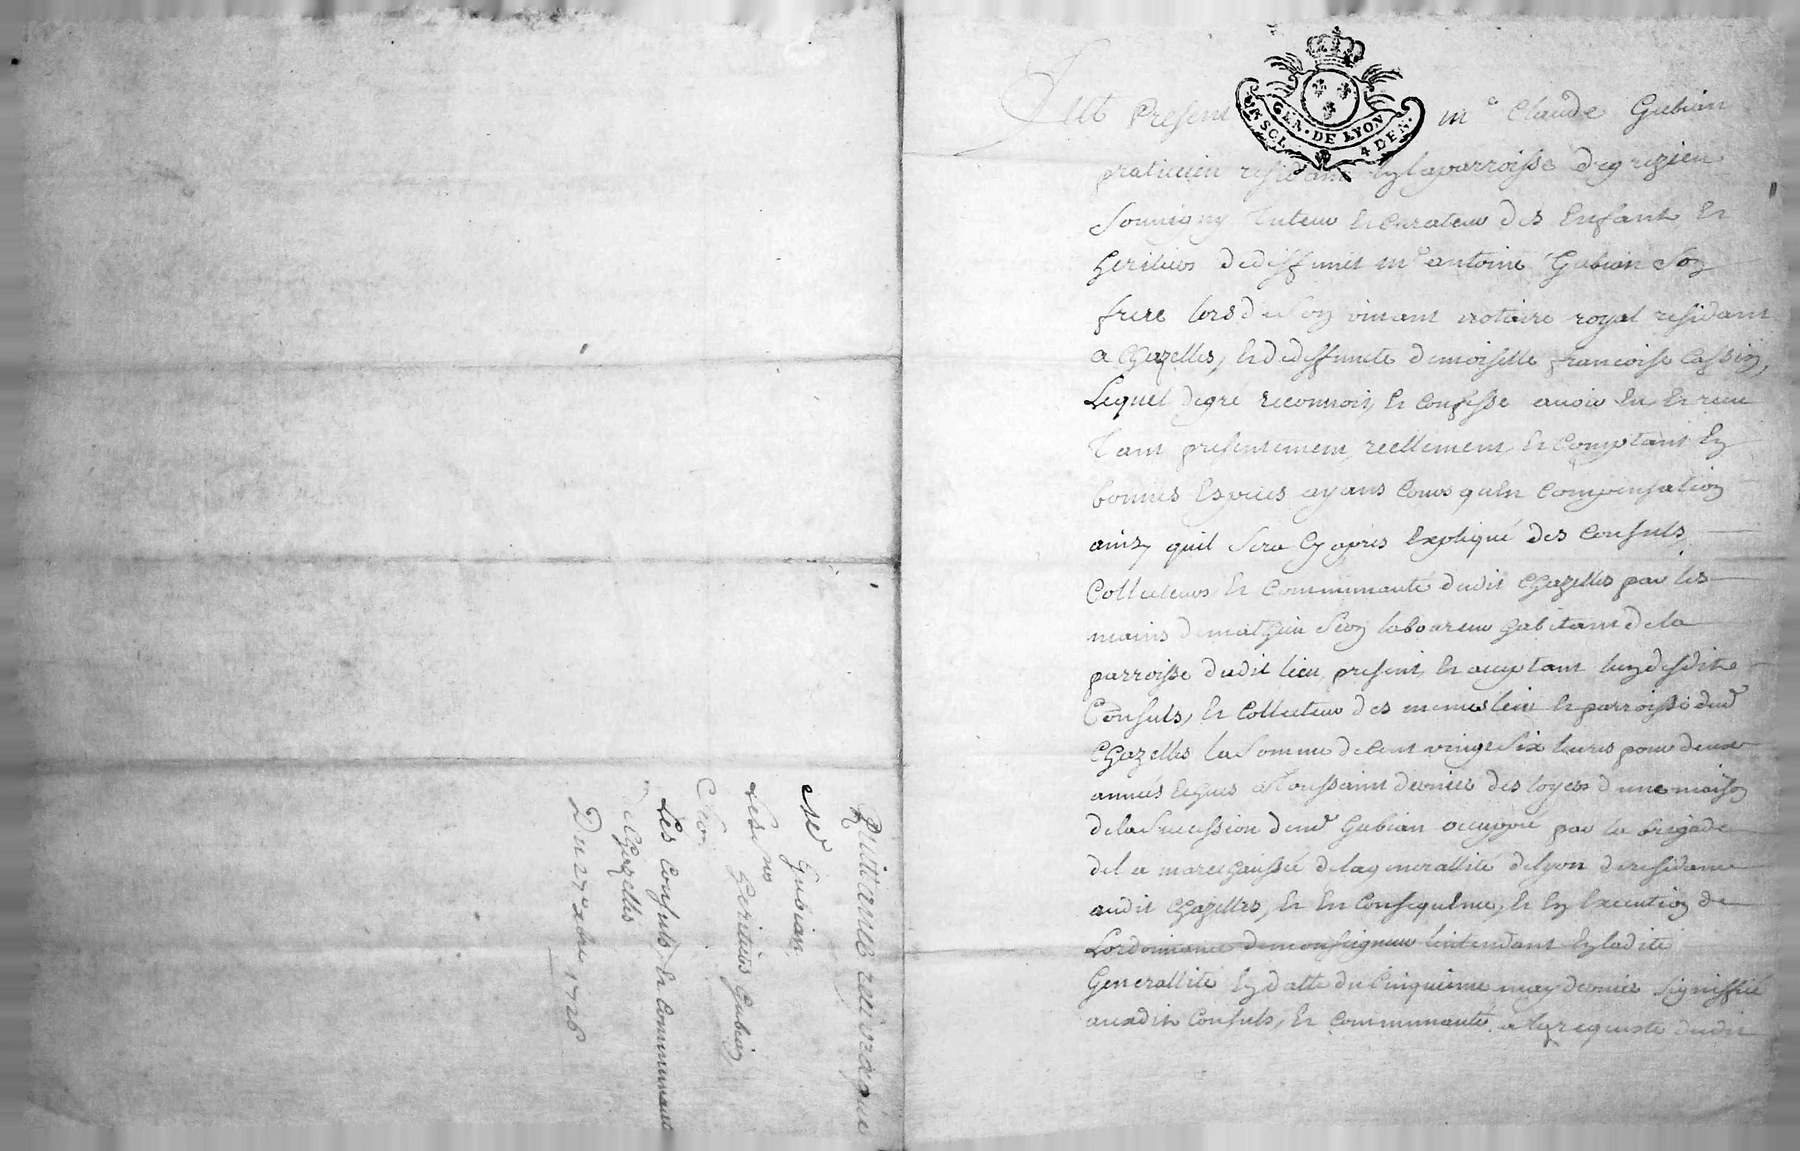 Quittance reciproque
Sr Gubian
Les nos heritiers Gubian
Les Consuls, Et Communauté
Chazelles
Du 27e xbre 1726
GEN. DE LYON
4 DEN.
Fut Present Me Claude Gubian
praticien residant En la parroisse de grezieu
Souvigny Tuteur Et Curateur des Enfants Et
heritiers de deffunct Me antoine Gubian Son
frere lors de Son vivant notaire royal residant
a Chazelles, Et de deffuncte demoiselle francoise Cassin,
Lequel de gré reconnoit, Et Confesse avoir Eu, Et receu
Tant presentement, reellement, Et Comptant En
bonnes Especes ayans Cours qu'en Compensation
ainsy quil Sera Cy apres Expliqué des Consuls,
Collecteurs, Et Communauté dudit Chazelles par les
mains de mathieu laboureur habitant de la
parroisse dudit lieu, present, Et acceptant, l'un desdits
Consuls, Et Collecteur des memes lieu Et parroisse dud
Chazelles la Somme de Cent vingt Six livres pour deux
années Echues a Toussaint derniere des loyers d'une maison
de la Succession dud Gubian occuppée par la brigade
de la marechaussée de la generallité de lyon de residance
audit Chazelles, Et En Consequence, Et En Execution de
Lordonnance de monseigneur lintendant En ladite
Generallité En datte du Cinquieme may dernier Signiffié
auxdits Consuls, Et Communauté a la requeste dudit